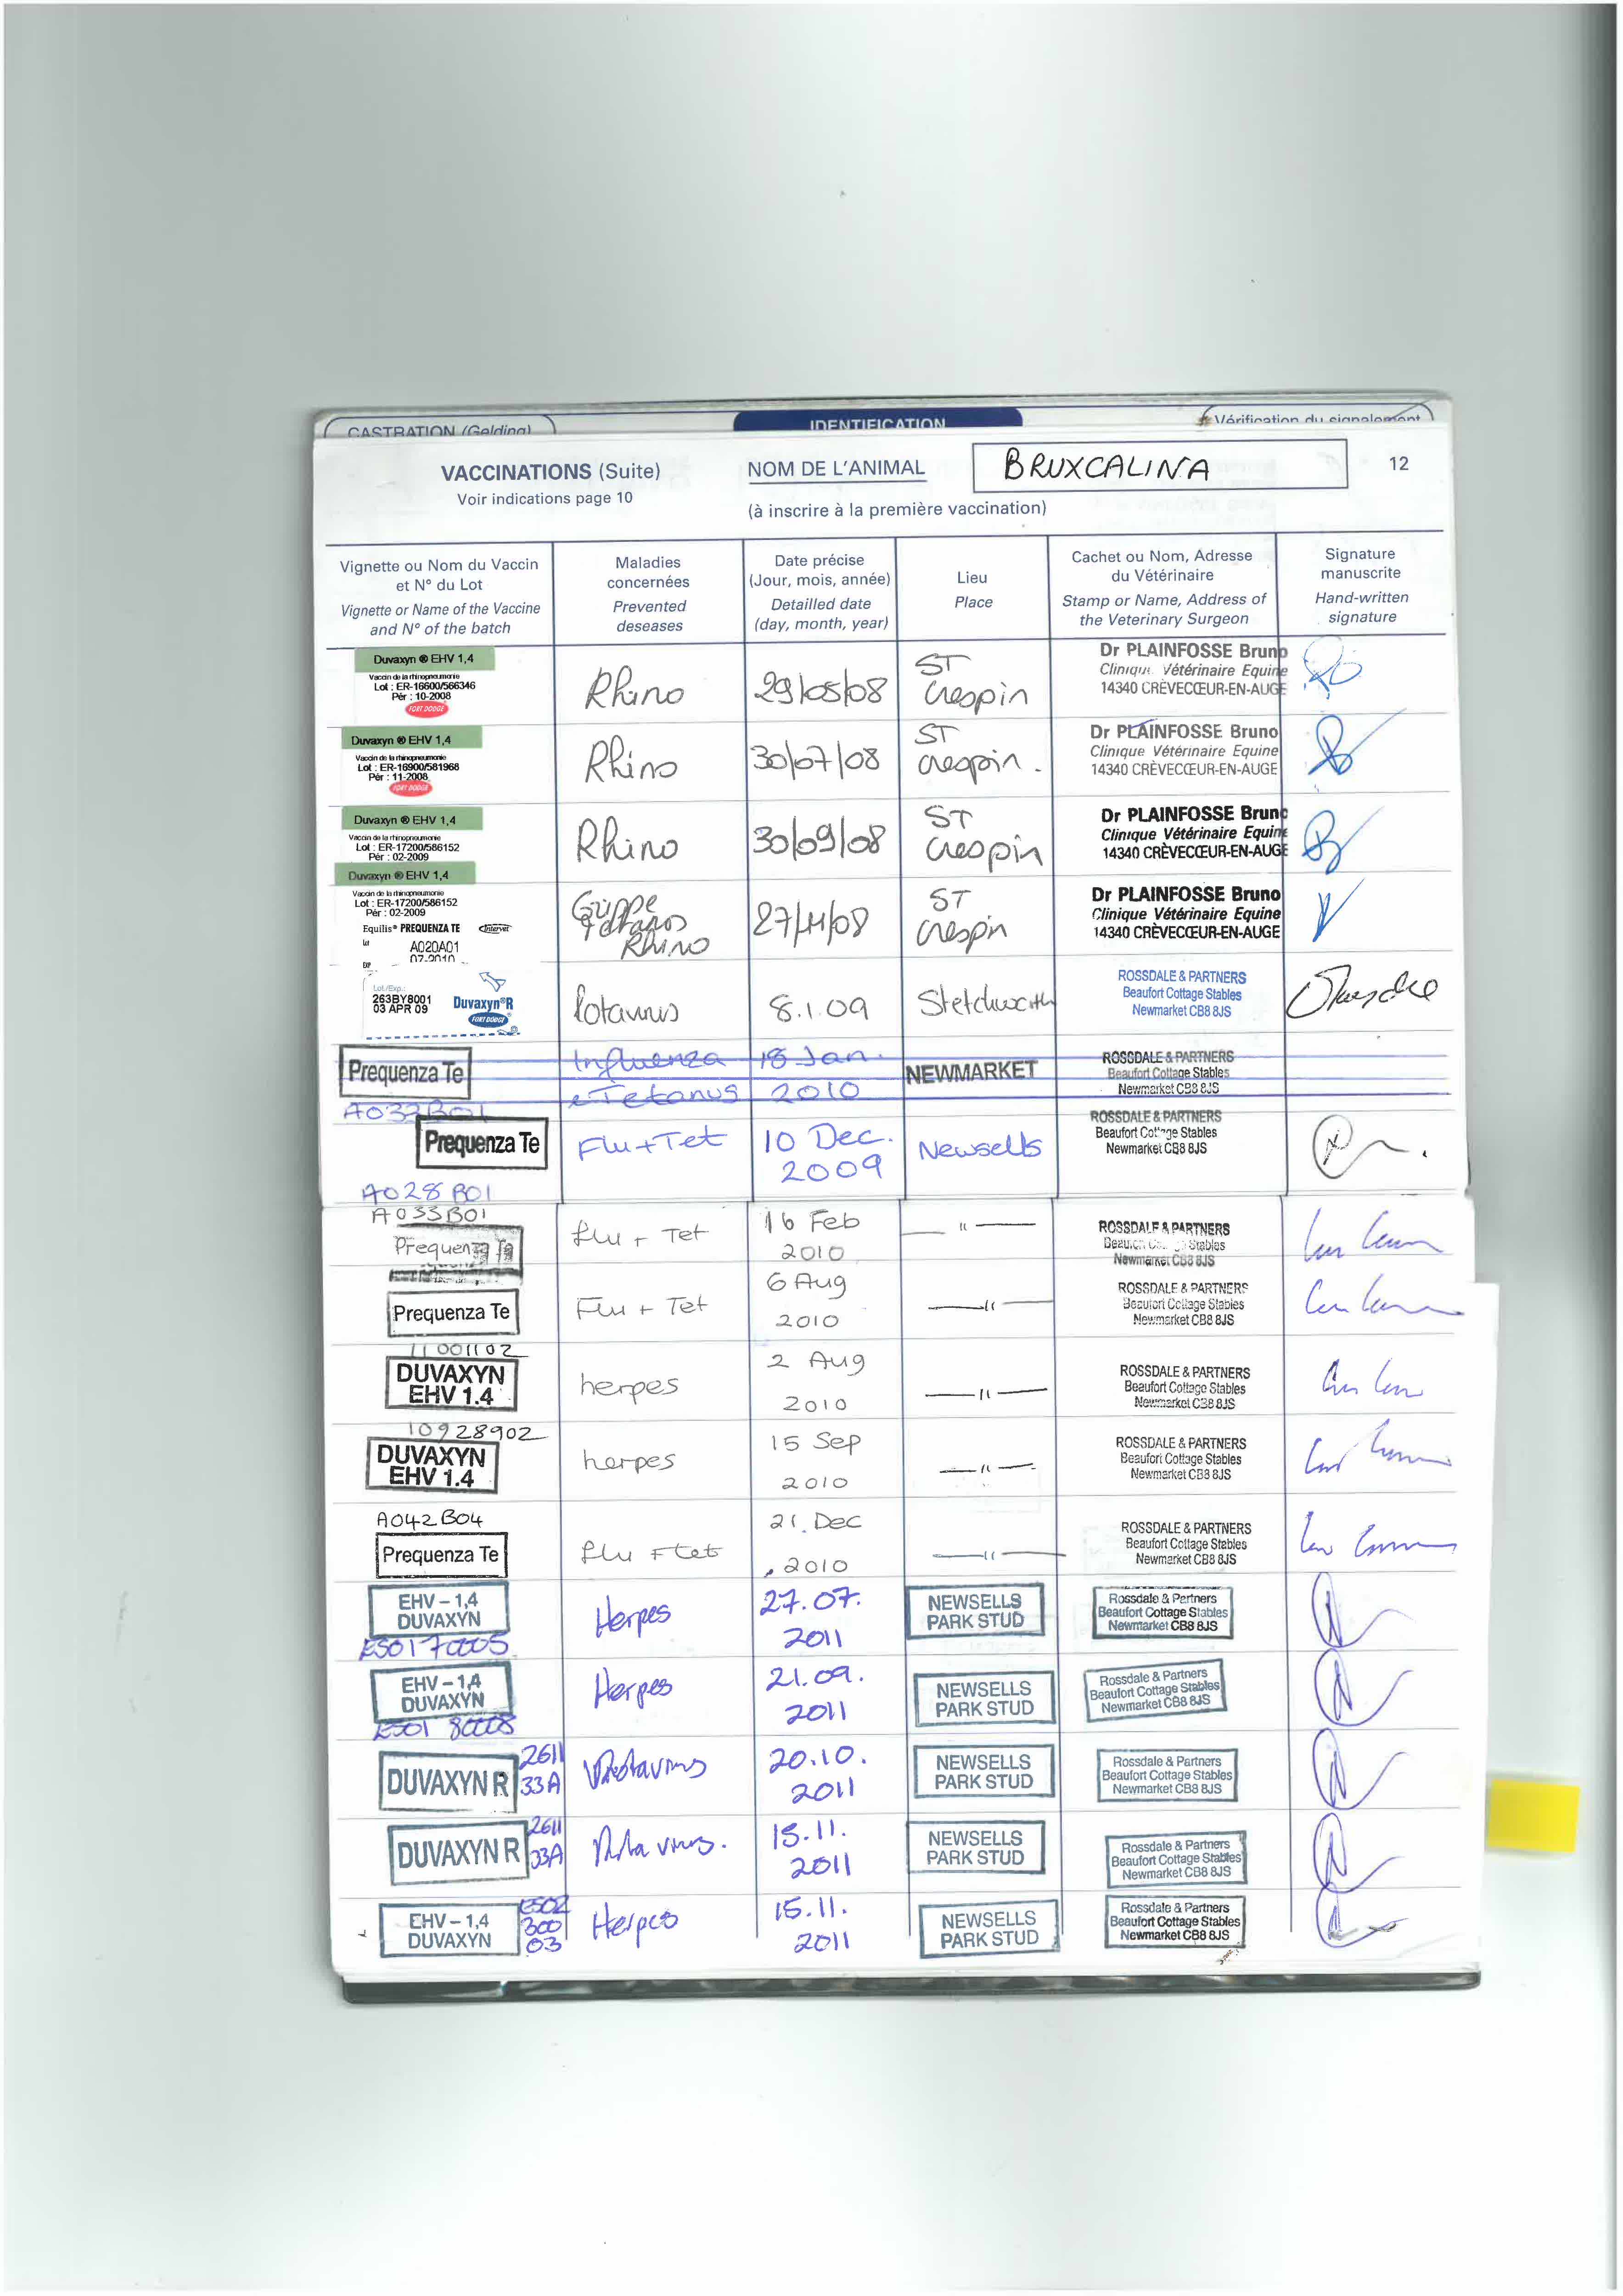 CASTRATION (Gelding)
IDENTIFICATION
Vérification du signalement
VACCINATIONS (Suite)
Voir indications page 10
NOM DE L'ANIMAL
BRUXCALINA
12
(à inscrire à la première vaccination)
Vignette ou Nom du Vaccin
et N° du Lot
Vignette or Name of the Vaccine
and N° of the batch
Maladies
concernées
Prevented
deseases
Date précise
(Jour, mois, année)
Detailled date
(day, month, year)
Lieu
Place
Cachet ou Nom, Adresse
du Vétérinaire
Stamp or Name, Address of
the Veterinary Surgeon
Signature
manuscrite
Hand-written
signature
Duvaxyn ® EHV 1,4
Vaccin de la rhinopneumonie
Lot : ER-16600/566346
Pér : 10-2008
FORT DODGE
Rhino
29/05/08
ST
Crespin
Dr PLAINFOSSE Bruno
Clinique Vétérinaire Equine
14340 CRÈVECŒUR-EN-AUGE
Duvaxyn ® EHV 1,4
Vaccin de la rhinopneumonie
Lot : ER-16900/581968
Pér : 11-2008
FORT DODGE
Rhino
30/07/08
ST
Crespin.
Dr PLAINFOSSE Bruno
Clinique Vétérinaire Equine
14340 CRÈVECŒUR-EN-AUGE
Duvaxyn ® EHV 1,4
Vaccin de la rhinopneumonie
Lot : ER-17200/586152
Pér : 02-2009
Rhino
30/09/08
ST
Crespin
Dr PLAINFOSSE Bruno
Clinique Vétérinaire Equine
14340 CRÈVECŒUR-EN-AUGE
Duvaxyn ® EHV 1,4
Vaccin de la rhinopneumonie
Lot : ER-17200/586152
Pér : 02-2009
Equilis® PREQUENZA TE Intervet
Lot
A020A01
EXP 07-2010
Grippe
Tétanos
Rhino
27/11/08
ST
Crespin
Dr PLAINFOSSE Bruno
Clinique Vétérinaire Equine
14340 CRÈVECŒUR-EN-AUGE
Lot./Exp.:
263BY8001
03 APR 09
Duvaxyn®R
FORT DODGE
Rotavirus
8.1.09
Stetchworth
ROSSDALE & PARTNERS
Beaufort Cottage Stables
Newmarket CB8 8JS
Prequenza Te
A032B01
Influenza
e Tetanus
18 Jan.
2010
NEWMARKET
ROSSDALE & PARTNERS
Beaufort Cottage Stables
Newmarket CB8 8JS
Prequenza Te
A028B01
Flu + Tet
10 Dec.
2009
Newsells
ROSSDALE & PARTNERS
Beaufort Cottage Stables
Newmarket CB8 8JS
A033B01
Prequenza Te
flu + Tet
16 Feb
2010
— " —
ROSSDALE & PARTNERS
Beaufort Cottage Stables
Newmarket CB8 8JS
Prequenza Te
Flu + Tet
6 Aug
2010
— " —
ROSSDALE & PARTNERS
Beaufort Cottage Stables
Newmarket CB8 8JS
11001102
DUVAXYN
EHV 1.4
herpes
2 Aug
2010
— " —
ROSSDALE & PARTNERS
Beaufort Cottage Stables
Newmarket CB8 8JS
10928902
DUVAXYN
EHV 1.4
herpes
15 Sep
2010
— " —
ROSSDALE & PARTNERS
Beaufort Cottage Stables
Newmarket CB8 8JS
A042B04
Prequenza Te
flu + tet
21. Dec
2010
— " —
ROSSDALE & PARTNERS
Beaufort Cottage Stables
Newmarket CB8 8JS
EHV – 1,4
DUVAXYN
Herpes
27.07.
2011
NEWSELLS
PARK STUD
Rossdale & Partners
Beaufort Cottage Stables
Newmarket CB8 8JS
EHV – 1,4
DUVAXYN
Herpes
21.09.
2011
NEWSELLS
PARK STUD
Rossdale & Partners
Beaufort Cottage Stables
Newmarket CB8 8JS
DUVAXYN R
2611
33A
Rotavirus
20.10.
2011
NEWSELLS
PARK STUD
Rossdale & Partners
Beaufort Cottage Stables
Newmarket CB8 8JS
DUVAXYN R
2611
33A
Rota virus.
15.11.
2011
NEWSELLS
PARK STUD
Rossdale & Partners
Beaufort Cottage Stables
Newmarket CB8 8JS
EHV – 1,4
DUVAXYN
E502
300
03
Herpes
15.11.
2011
NEWSELLS
PARK STUD
Rossdale & Partners
Beaufort Cottage Stables
Newmarket CB8 8JS